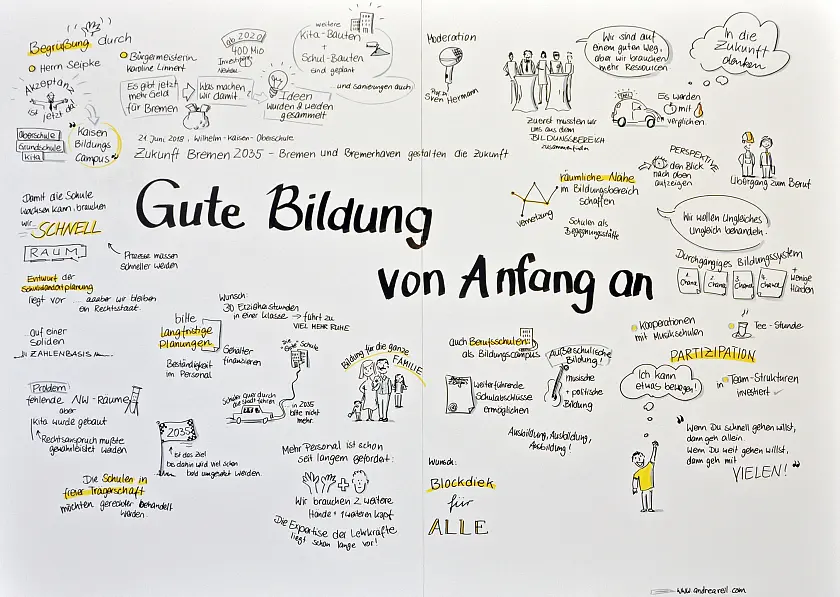 Begrüßung durch
Herr Seipke
Bürgermeisterin
Karoline Linnert
Akzeptanz
ist
jetzt da!
Oberschule
Grundschule
Kita
"Kaisen
Bildungs
Campus"
ab 2020
400 Mio
Es gibt jetzt
mehr Geld
für Bremen
Was machen
wir damit
Ideen
wurden & werden
gesammelt
weitere
Kita-Bauten
+
Schul-Bauten
sind geplant
und Sanierungen auch
21. Juni 2018, Wilhelm-Kaisen-Oberschule
Zukunft Bremen 2035 - Bremen und Bremerhaven gestalten die Zukunft
Gute Bildung
von Anfang an
Moderation
Sven Hermann
Wir sind auf
einem guten Weg,
aber wir brauchen
mehr Ressourcen
Zuerst mussten wir
uns aus dem
BILDUNGSBEREICH
zusammenfinden
In die
Zukunft
denken
Es werden
mit
verglichen.
PERSPEKTIVE
den Blick
nach oben
aufzeigen
Übergang zum Beruf
räumliche Nähe
im Bildungsbereich
schaffen
Vernetzung
Schulen als
Begegnungsstätte
Wir wollen Ungleiches
Ungleich behandeln.
Durchgängiges Bildungssystem
1. Chance
2. Chance
3. Chance
4. Chance
+
wenige
Hürden
Damit die Schule
wachsen kann, brauchen
wir
SCHNELL
RAUM
Prozesse müssen
schneller werden
Entwurf der
Schulstandortplanung
liegt vor ... aaaber wir bleiben
ein Rechtsstaat.
...auf einer
soliden
ZAHLENBASIS
bitte
langfristige
Planungen
Beständigkeit
im Personal
Gehälter
finanzieren
Wunsch:
30 Erzieherstunden
in einer Klasse → führt zu
VIEL MEHR RUHE
Die "Gute" Schule
Schüler quer durch
die Stadt fahren
in 2035
bitte nicht
mehr.
Bildung für die ganze
FAMILIE
Problem
fehlende NW-Räume
aber
Kita wurde gebaut
Rechtsanspruch mußte
gewährleistet werden
2035
ist das Ziel
bis dahin wird viel schon
bald umgesetzt werden.
Die Schulen in
freier Trägerschaft
möchten gerechter behandelt
werden.
Mehr Personal ist schon
seit langem gefordert:
+
Wir brauchen 2 weitere
Hände + 1 weiteren Kopf
Die Expertise der Lehrkräfte
liegt schon lange vor!
auch Berufsschulen
als Bildungscampus
weiterführende
Schulabschlüsse
ermöglichen
Außerschulische
Bildung!
musische
+ politische
Bildung
Ausbildung, Ausbildung,
Ausbildung!
Wunsch:
Blockdiek
für
ALLE
Kooperationen
mit Musikschulen
Tee-Stunde
PARTIZIPATION
Ich kann
etwas bewegen!
in Team-Strukturen
investiert
"Wenn Du schnell gehen willst,
dann geh allein.
Wenn Du weit gehen willst,
dann geh mit
VIELEN!"
www.andrearell.com